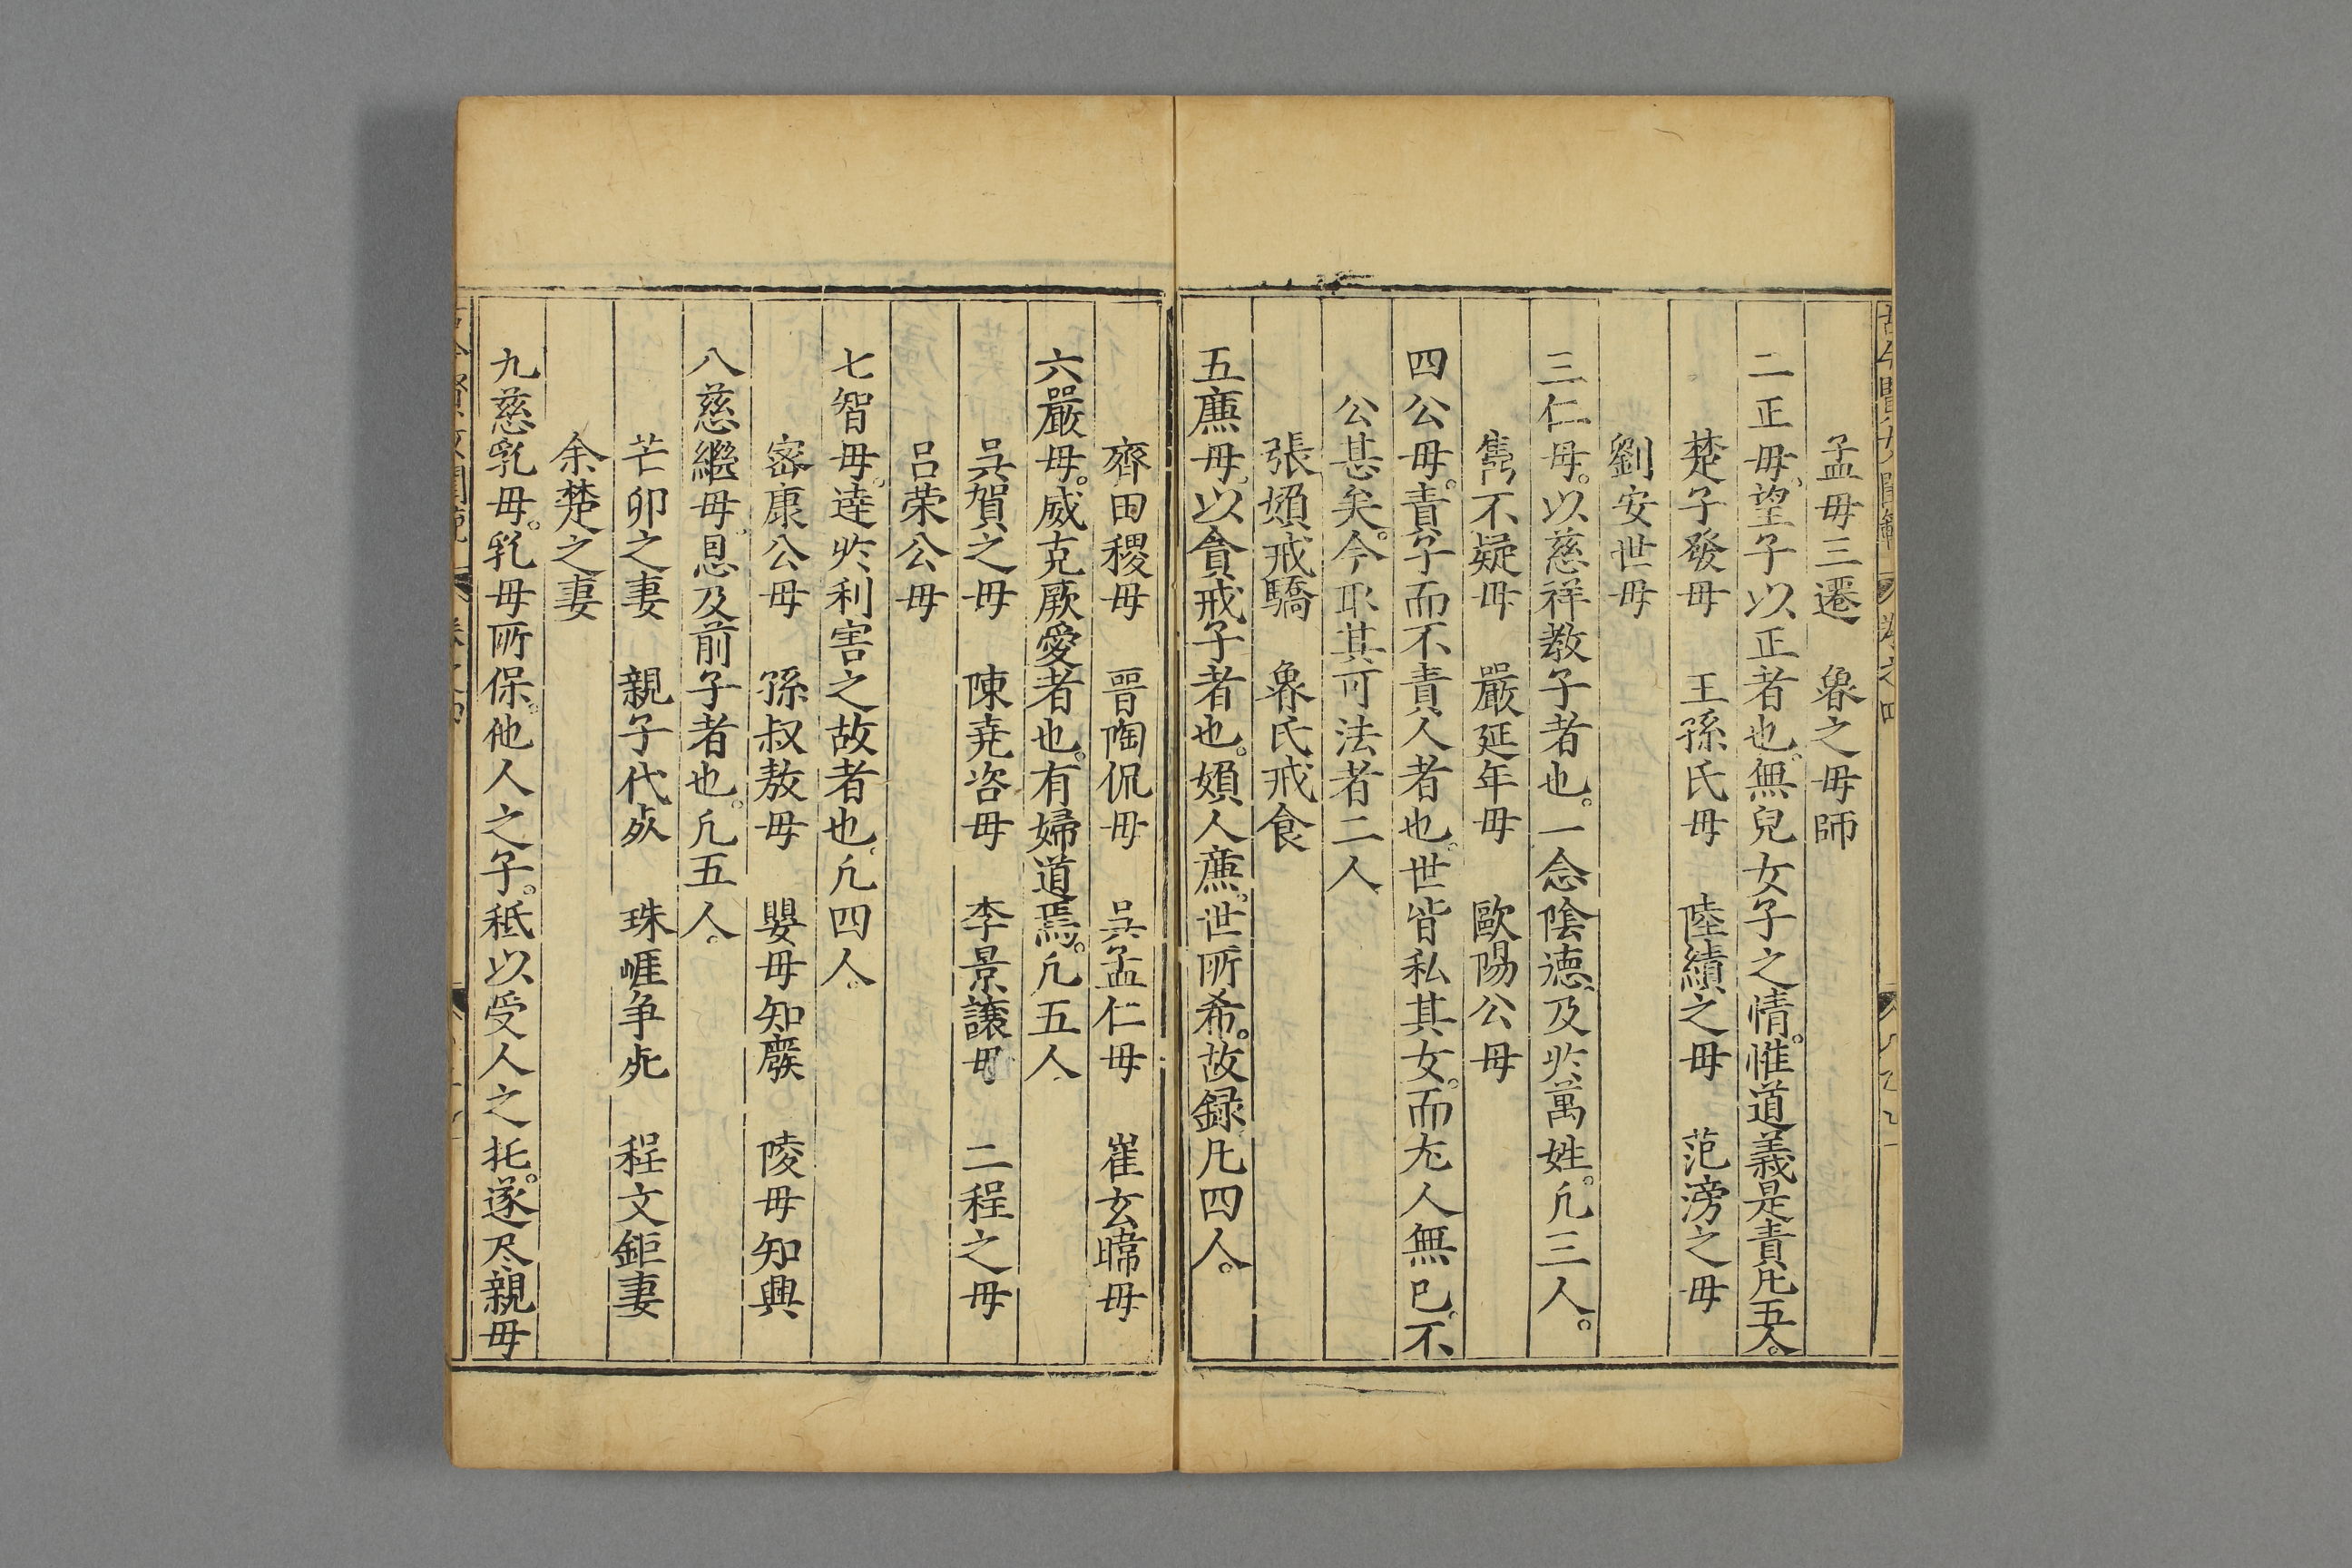 孟毋三遷　魯之毋師
二正毋。望子以正者也。無兒女子之情。惟道義是責凡五人。
楚子發毋　王孫氏毋　陸績之毋　范滂之毋
劉安世毋
三仁毋。以慈祥教子者也。一念陰德。及扵萬姓。凢三人。
雋不疑毋　嚴延年毋　歐陽公毋
四公毋。責子而不責人者也。世皆私其女。而尤人無已。不
公甚矣。今取其可法者二人
張媍戒驕　魯氏戒食
五亷毋。以貪戒子者也。媍人亷。世所希。故録凡四人。
齊田稷毋　晉陶侃毋　吳孟仁毋　崔玄暐毋
六嚴毋。威克厥愛者也。有婦道焉。凢五人
吳賀之毋　陳堯咨毋　李景讓毋　二程之毋
吕荣公毋
七智毋。達扵利害之故者也。凢四人。
密康公毋　孫叔敖毋　嬰毋知廢　陵毋知興
八慈繼毋。恩及前子者也。凢五人。
芒卯之妻　親子代死　珠崕争死　程文鉅妻
余楚之妻
九慈乳毋。乳毋所保。他人之子。秪以受人之托。遂尽親毋